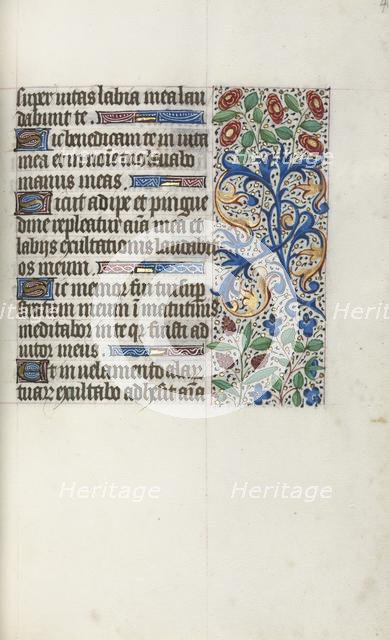 4
super vitas labia mea lau
dabunt te.
Sic benedicam te in vita
mea et in noie tuo levabo
manus meas.
Sicut adipe et pingue
dine repleatur aīa mea et
labijs exultationis laudabit
os meum.
Sic memor fui tui sup
meum ī matutinis
meditabor in te qr fuisti ad
iutor meus.
Et in velamento alar
exultabo adhesit aīa
Heritage Heritage Heritage
Heritage Heritage Heritage